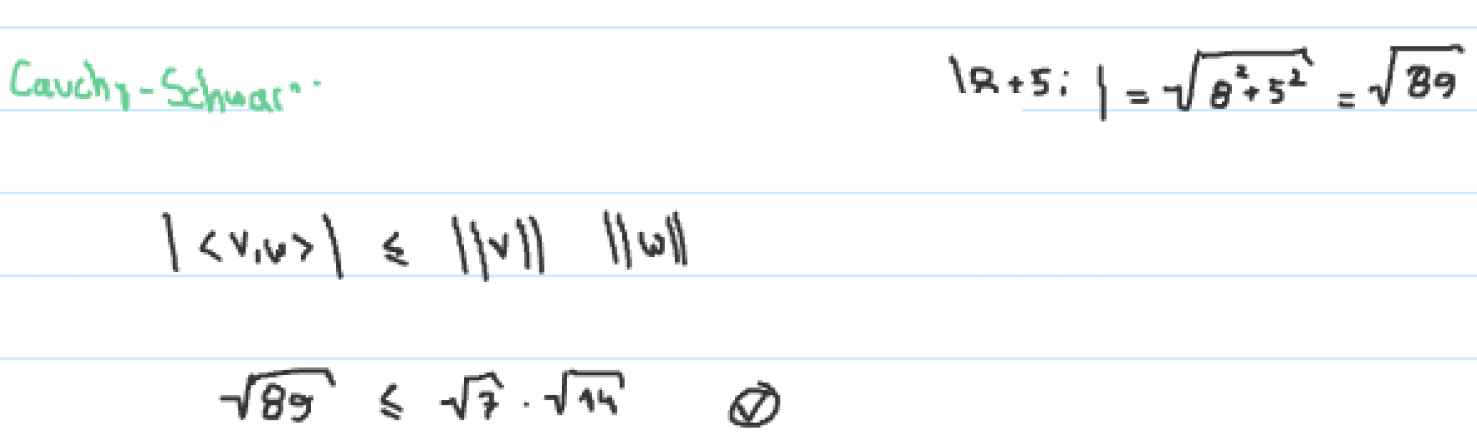 Cauchy-Schwar
|8+5i| = √(8²+5²) = √89
|<v,w>| ≤ ||v|| ||w||
√89 ≤ √7 · √14 ✓